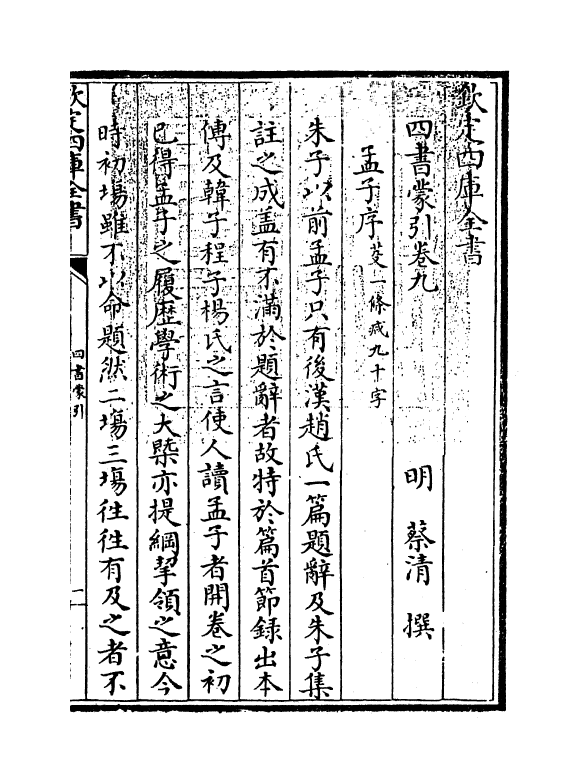 欽定四庫全書
四書蒙引卷九
明 蔡清 撰
孟子序 芟一條減九十字
朱子以前孟子只有後漢趙氏一篇題辭及朱子集
註之成盖有不滿於題辭者故特於篇首節録出本
傳及韓子程子楊氏之言使人讀孟子者開卷之初
已得孟子之履歴學術之大槩亦提綱挈領之意今
時初塲雖不以命題然二塲三塲徃徃有及之者不
欽定四庫全書
四書蒙引